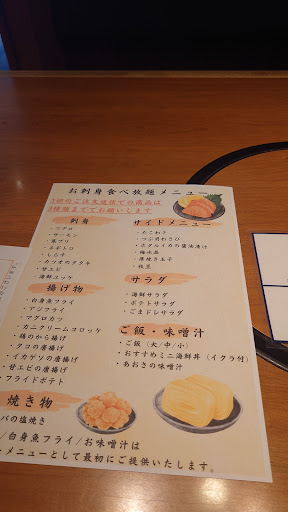 お刺身食べ放題メニュー
1回のご注文送信での商品は
3種類まででお願いします
刺身
・マグロ
・サーモン
・寒ブリ
・ネギトロ
・しらす
・カツオのタタキ
・甘エビ
海鮮ユッケ
揚げ物
・白身魚フライ
・アジフライ
・マグロカツ
・カニクリームコロッケ
・鶏のから揚げ
・タコの唐揚げ
・イカゲソの唐揚げ
・甘エビの唐揚げ
・フライドポテト
焼き物
バの塩焼き
サイドメニュー
・たこわさ
・つぶ貝わさび
・ホタルイカの醤油漬け
・梅水晶
・厚焼き玉子
・枝豆
サラダ
・海鮮サラダ
・ポテトサラダ
・ごまドレサラダ
ご飯・味噌汁
・ご飯（大/中/小）
・おすすめミニ海鮮丼（イクラ付）
・あおさの味噌汁
/白身魚フライ/お味噌汁は
メニューとして最初にご提供いたします。